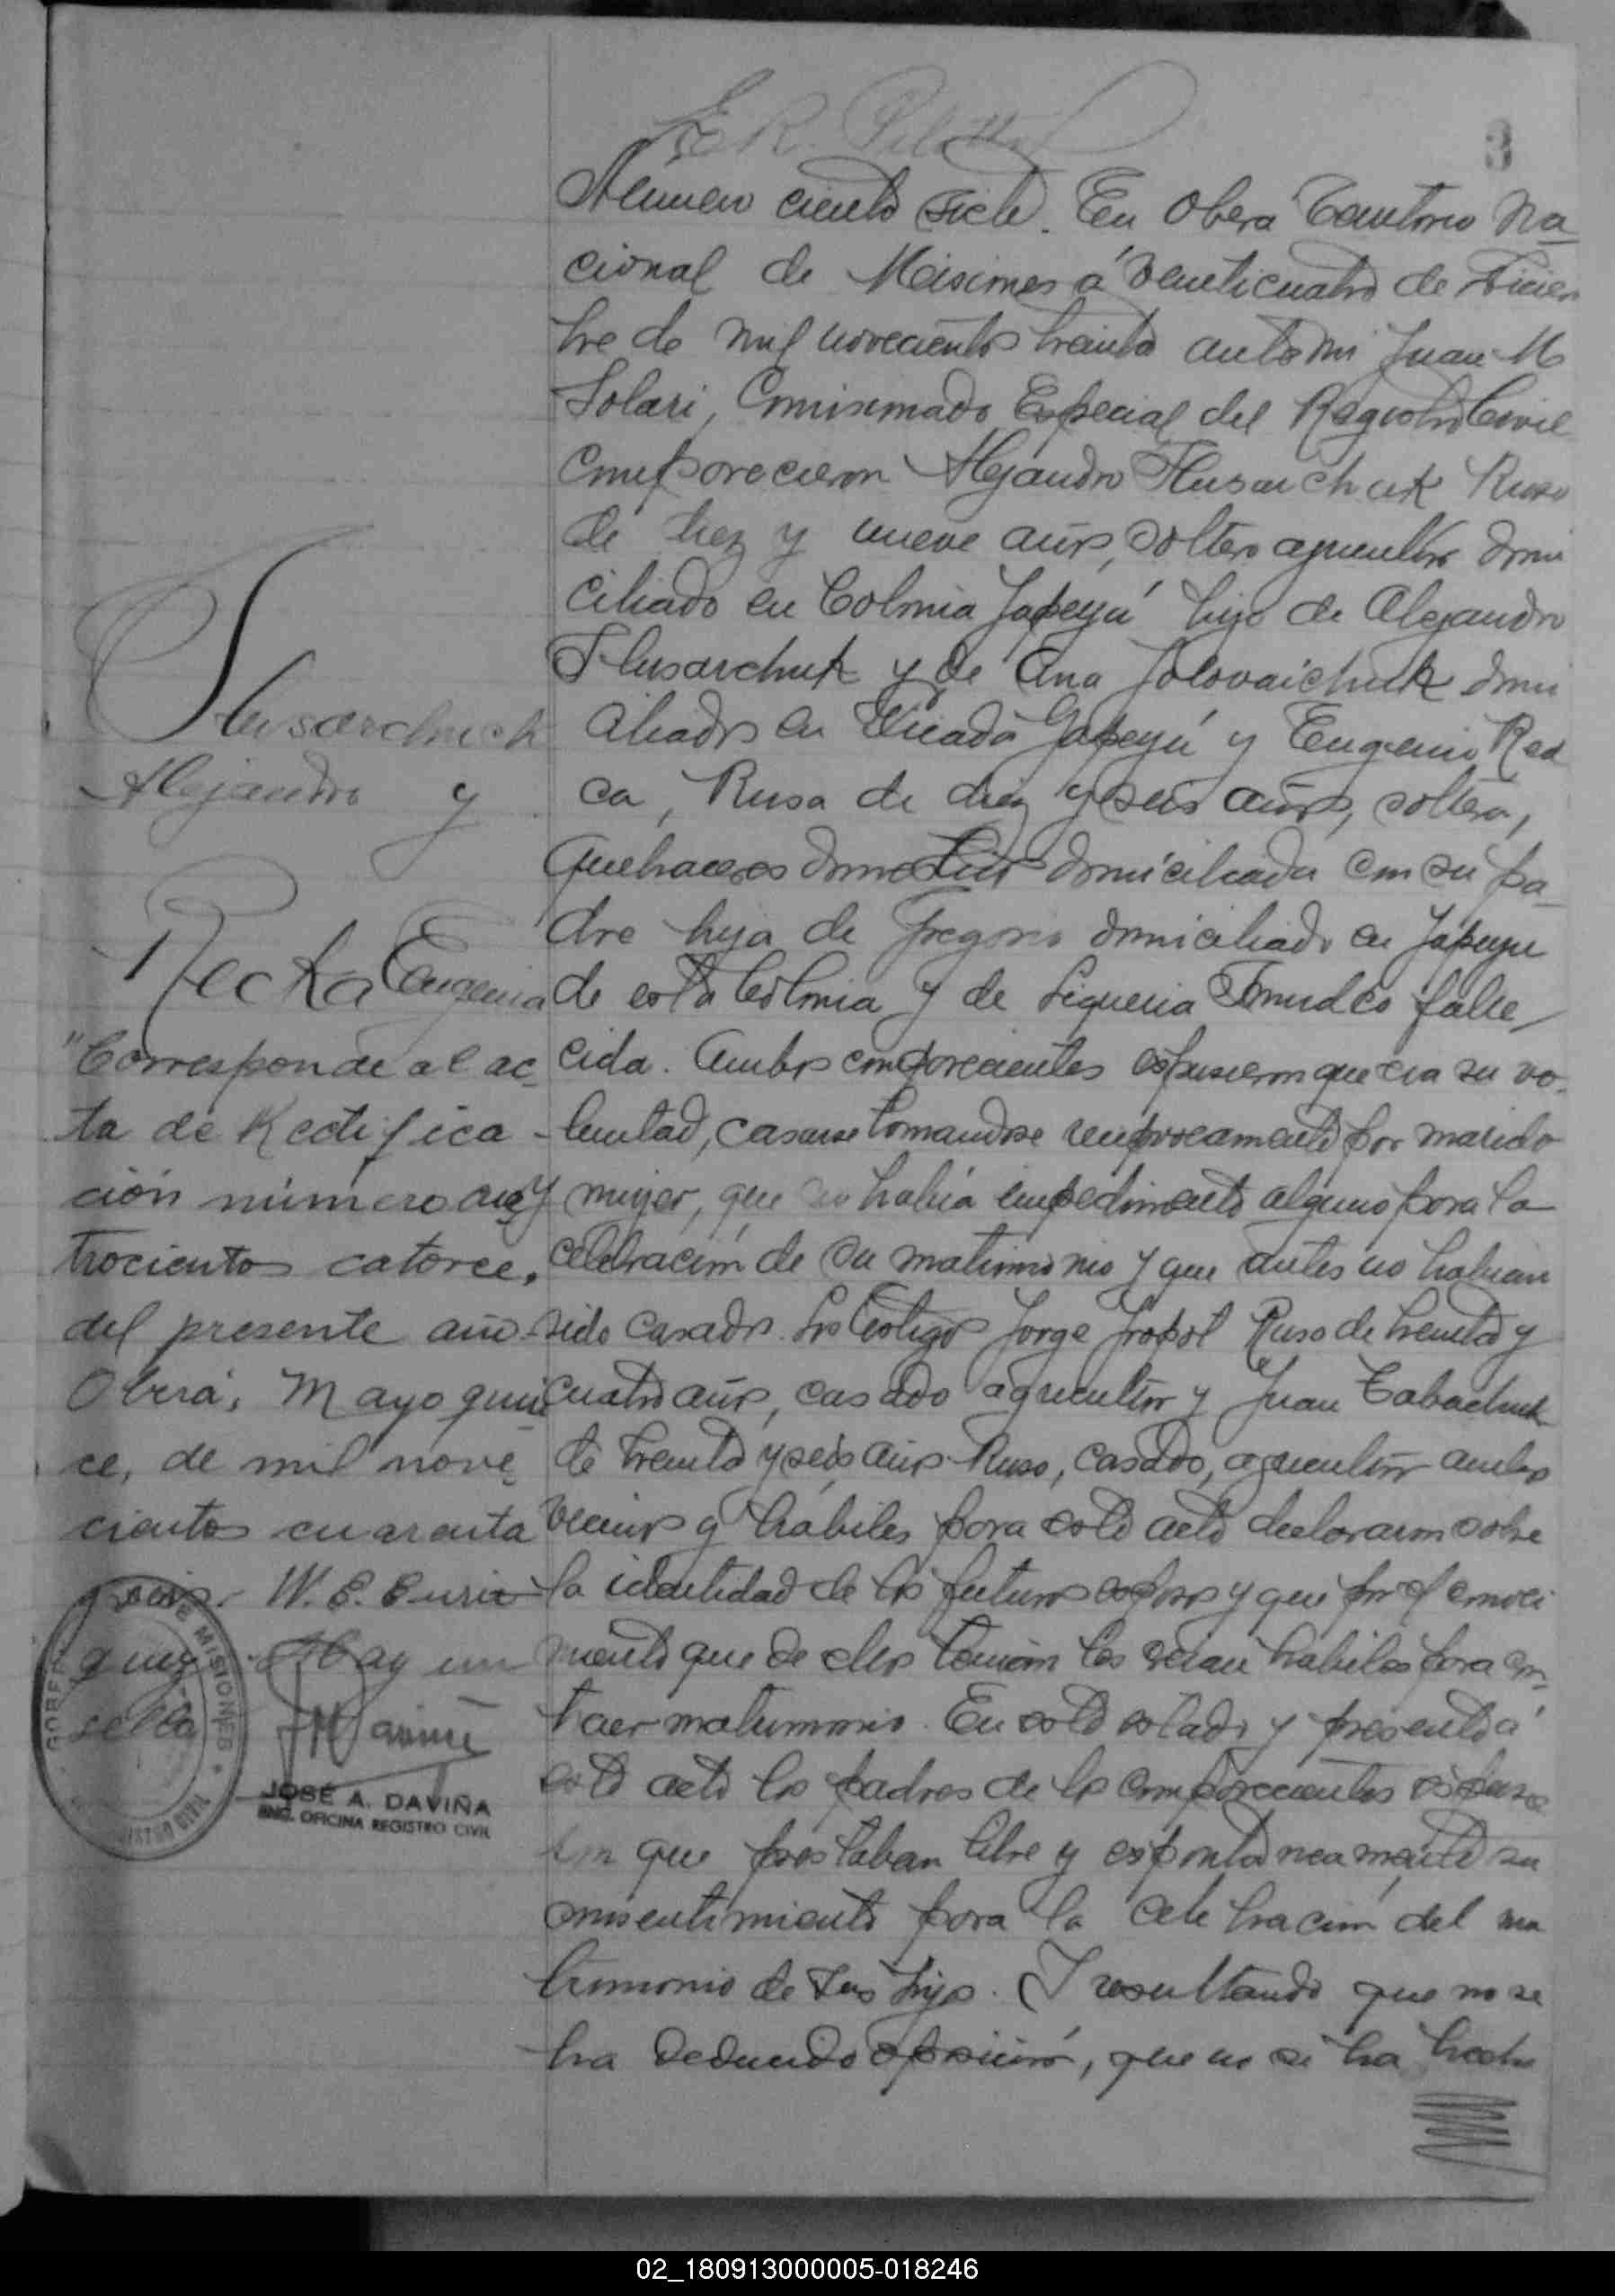 3
Número ciento siete. En Obera Territorio Na-
cional de Misiones á veinticuatro de Diciem
bre de mil novecientos treinta ante mi Juan M
Solari, Comisionado Especial del Registro Civil
comparecieron Alejandro Slusarchuk Ruso
de diez y nueve años, soltero agricultor domi
ciliado en Colonia Yapeyú hijo de Alejandro
Slusarchuk y de Ana Jolovaichuk domi
ciliados en Picada Yapeyú y Eugenia Red
ca, Rusa de diez y seis años, soltera,
quehaceres domesticos domiciliada con su pa-
dre hija de Gregorio domiciliado en Yapeyu
de esta Colonia y de falle
cida. Ambos comparecientes espusieron que era su vo-
luntad, casarse tomandose reciprocamente por marido
y mujer, que no había impedimento alguno para la
celebración de su matrimonio y que antes no habian
sido casados. Los testigos Jorge Ruso de treinta y
cuatro años, casado agricultor y Juan Tabachuk
de treinta y seis años Ruso, casado, agricultor ambos
vecinos y hábiles para este acto declararon sobre
la identidad de los futuros esposos y que por el conoci
miento que de ellos tenian los creian habiles para con-
traer matrimonio. En este estado y presente á
este acto los padres de los comparecientes espusie
ron que prestaban libre y espontaneamente su
consentimiento para la celebración del ma
trimonio de sus hijos. Y resultando que no se
ha deducido oposición, que no se ha hecho
Slusarchuck
Alejandro y
Recka Eugenia
"Corresponde al ac-
ta de Rectifica-
ción número cua-
trocientos catorce,
del presente año.-
Oberá, Mayo quin
ce, de mil nove-
cientos cuarenta
y seis.- W. E.
Hay un
sello
GOBER DE MISIONES
REGISTRO CIVIL
JOSÉ A. DAVIÑA
ENC. OFICINA REGISTRO CIVIL
02_180913000005-018246